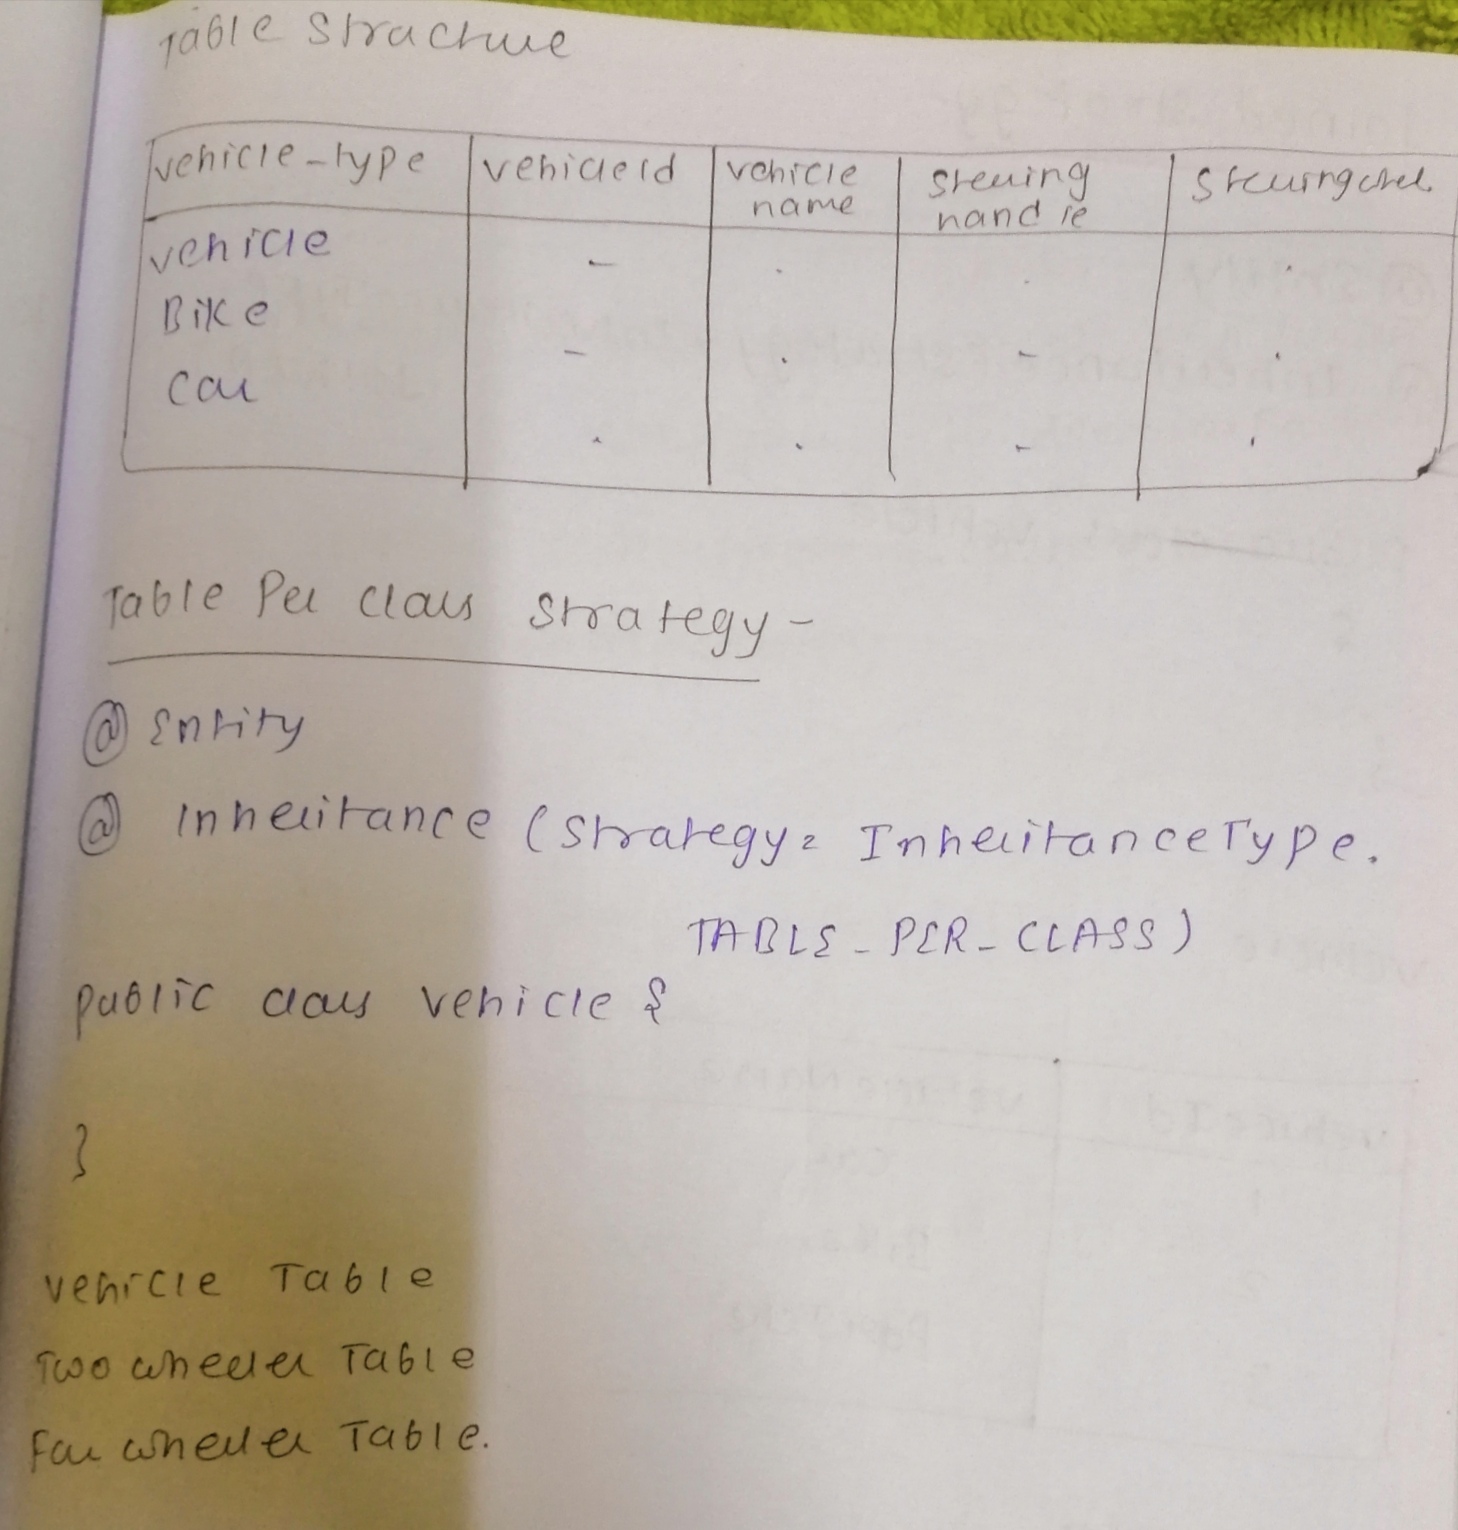 Table Structure
vehicle-type vehicleId vehicle name Steering handle
vehicle
Bike
Car
Table Per class Strategy -
@ Entity
@ Inheritance (Strategy = InheritanceType.
TABLE_PER_CLASS)
public class vehicle {
}
vehicle Table
Two wheeler Table
Four wheeler Table.